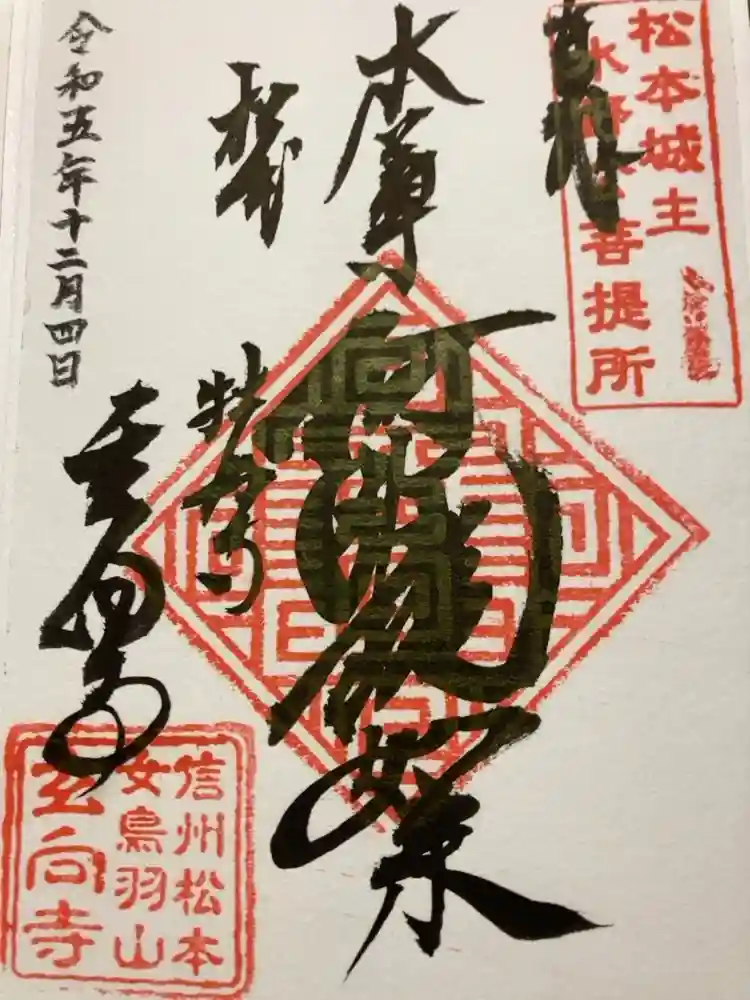 奉拝
松本城主
水野家菩提所
本尊
阿弥陀如来
玄向寺
令和五年十二月四日
信州松本
女鳥羽山
玄向寺